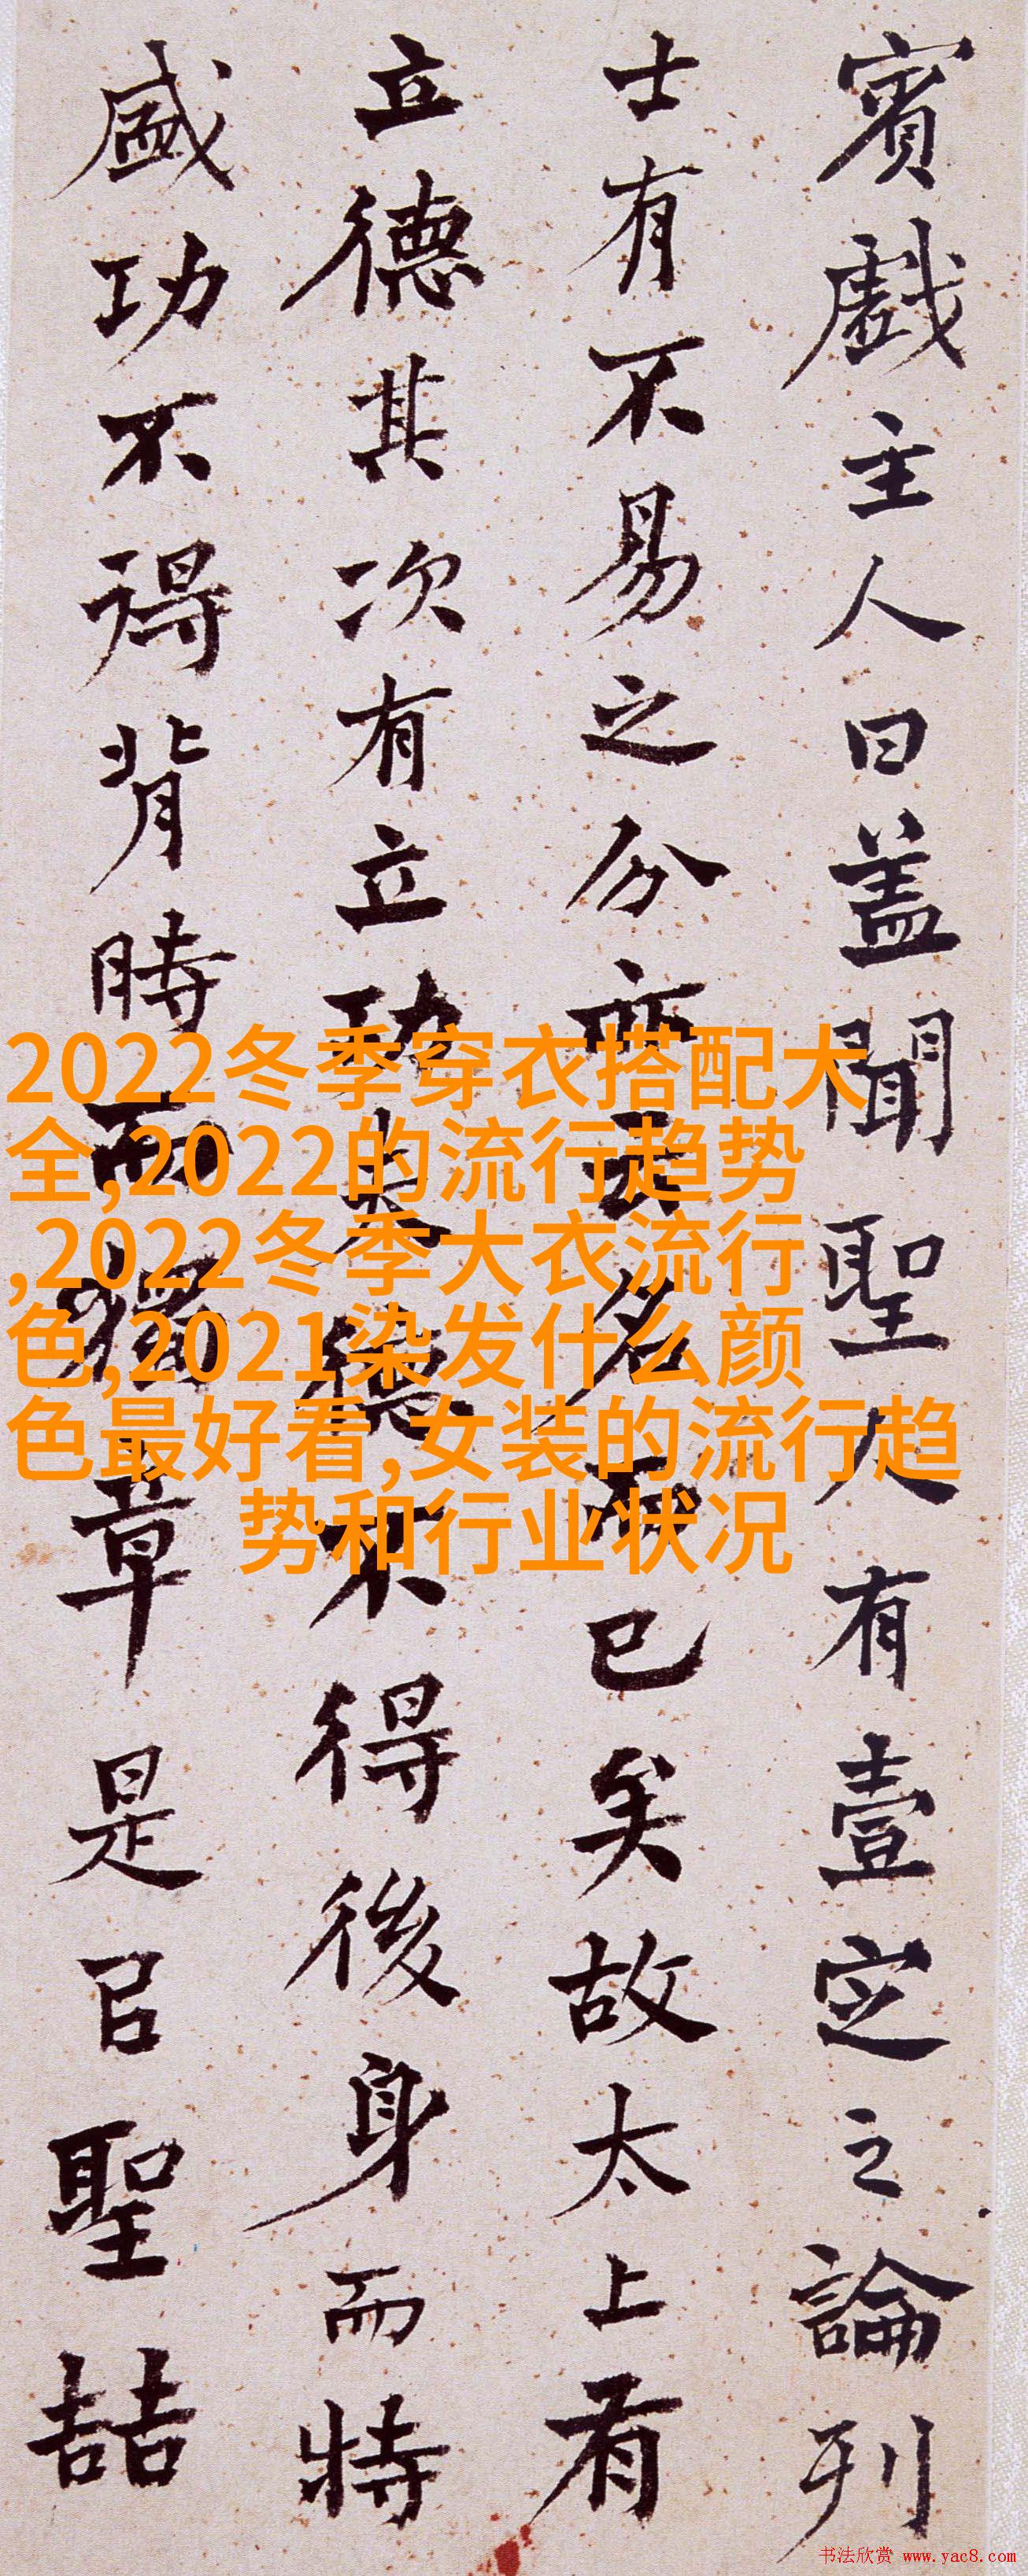 賓戲主人曰蓋聞聖人有壹定之論列
士有不易之分亦云名而已矣故太上有
立德其次有立功夫德不得後身而特
盛功不得背時而獨章是㠯聖喆
2022冬季穿衣搭配大
全,2022的流行趋势
,2022冬季大衣流行
色,2021染发什么颜
色最好看,女装的流行趋
势和行业状况
书法欣赏 www.yac8.com